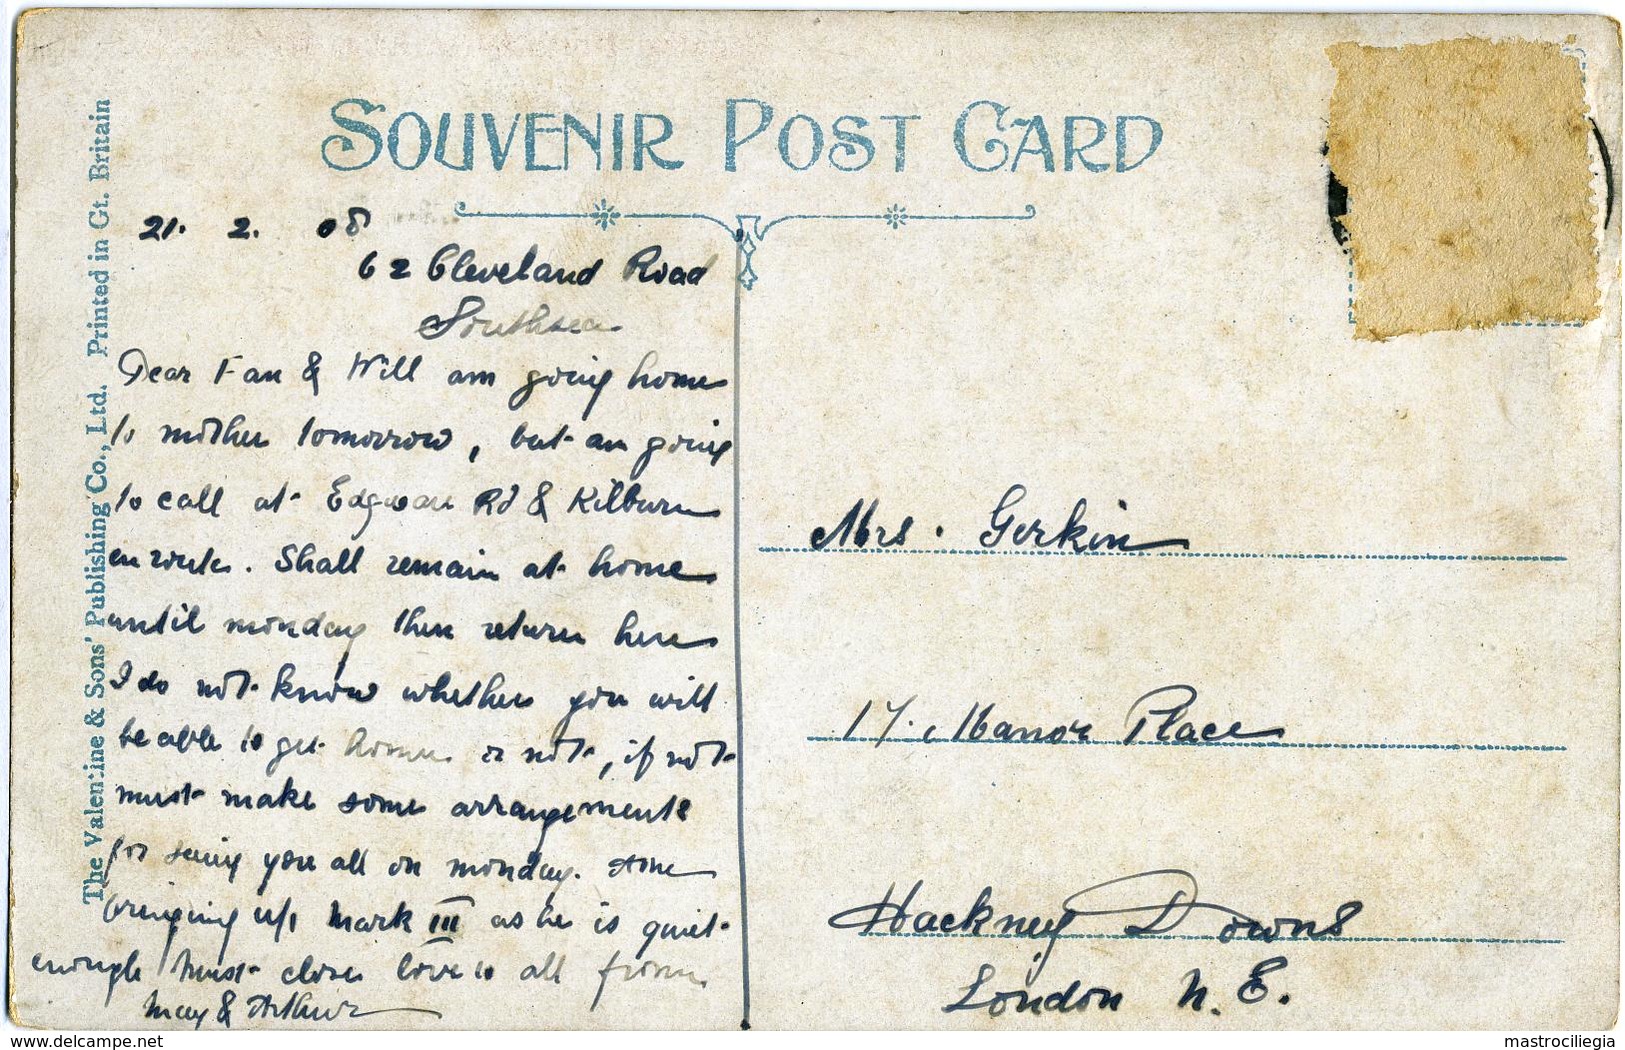 SOUVENIR POST CARD
The Valentine & Sons' Publishing Co., Ltd. Printed in Gt. Britain
21. 2. 08
62 Cleveland Road
Southsea
Dear Fan & Will am going home
to mother tomorrow, but am going
to call at Edgware Rd & Kilburn
en route. Shall remain at home
until monday then return here
I do not know whether you will
be able to get home or not, if not
must make some arrangements
for seeing you all on monday. Am
bringing up Mark III as he is quiet
enough must close love to all from
May & Arthur
Mrs. Gerkin
17. Manor Place
Hackney Downs
London N. E.
delcampe.net
mastrociliegia